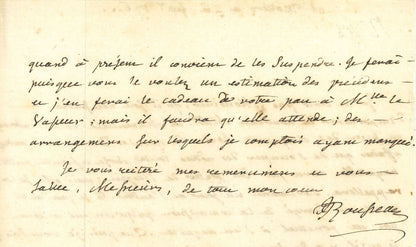 quand à présent il convient de les Suspendre. Je ferai
puisque vous le voulez un estimation des précédens
et j'en ferai le cadeau de votre part à M.lle le
Vasseur; mais il faudra qu'elle attende; des
arrangemens sur lesquels je comptois ayant manqué.
Je vous reitère mes remercimens et vous
Salue, Messieurs, de tout mon cœur
JJRousseau